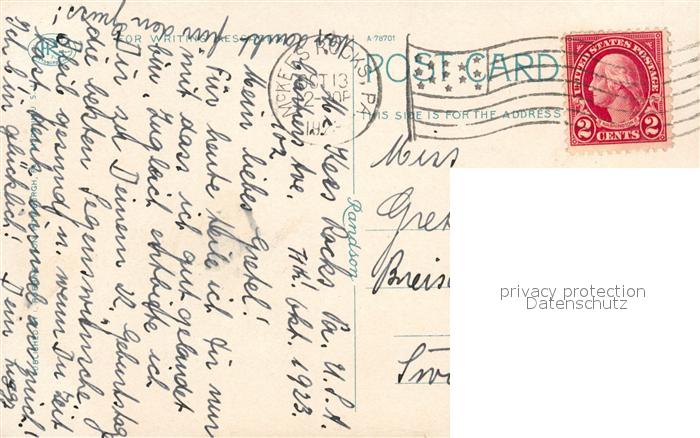 FOR WRITING MESSAGES
A-78701
POST CARD
THIS SIDE IS FOR THE ADDRESS
McKEES ROCKS, PA.
OCT 13
2-30P
UNITED STATES POSTAGE
2 CENTS 2
Randson
Mc Kees Rocks Pa. U.S.A.
Okt. 1923.
Mein liebes Gretel!
Für heute teile ich Dir nur
mit, dass ich gut gelandet
bin, zugleich entbiete ich
Dir, zu Deinem Geburtstage
die besten Segenswünsche
Bleib gesund u. wenn Du Zeit
hast, denk einmal an mich!
Ich bin glücklich! Dein
Miss
privacy protection
Datenschutz